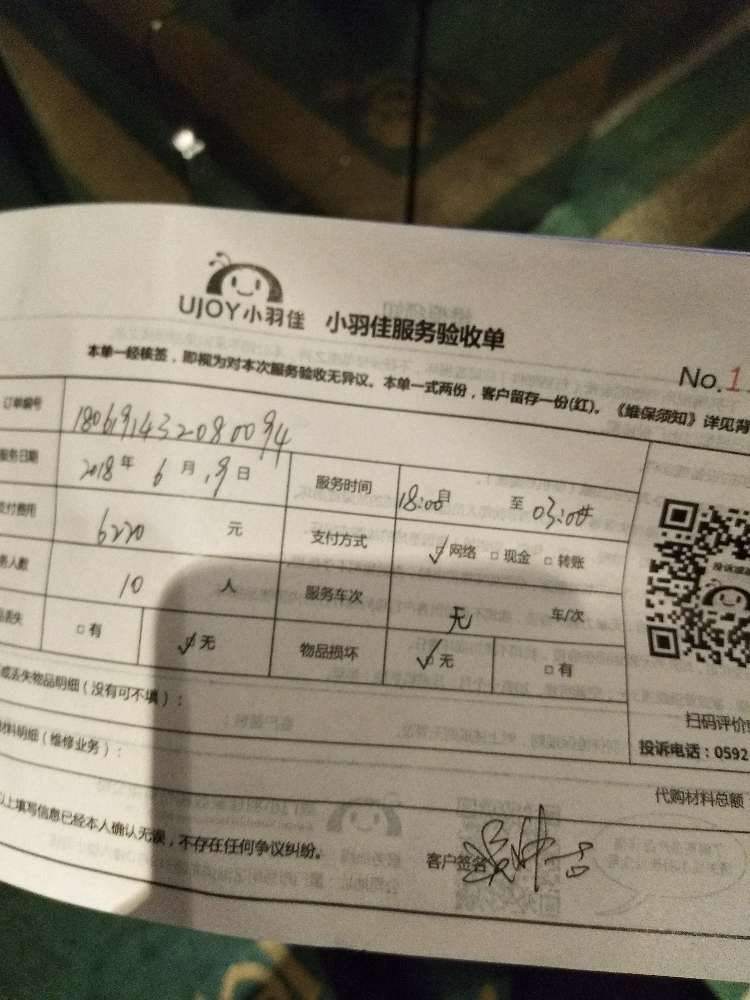 UJOY小羽佳 小羽佳服务验收单
No.1
本单一经核签，即视为对本次服务验收无异议。本单一式两份，客户留存一份(红)。《维保须知》详见背
订单编号 1806191432080094
服务日期 2018年 6月 19日 服务时间 18:00 至 03:00
支付费用 6220 元 支付方式 ☑网络 □现金 □转账
务人数 10 人 服务车次 无 车/次
品丢失 □有 ☑无 物品损坏 ☑无 □有
或丢失物品明细（没有可不填）：
扫码评价
材料明细（维修业务）：
投诉电话：0592
代购材料总额
以上填写信息已经本人确认无误，不存在任何争议纠纷。
客户签名